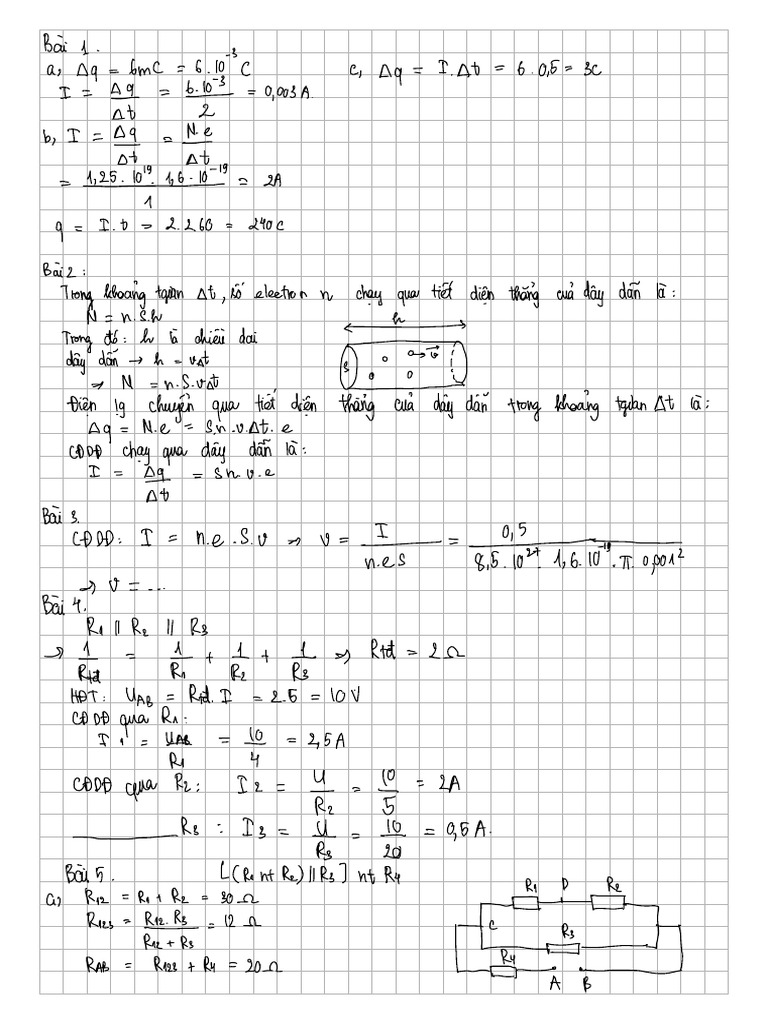 Bài 1.
a, Δq = 6mC = 6.10⁻³ C
I = Δq/Δt = 6.10⁻³/2 = 0,003A.
b, I = Δq/Δt = N.e/Δt
= 1,25.10¹⁹.1,6.10⁻¹⁹/1 = 2A
q = I.t = 2.260 = 240C
c, Δq = I.Δt = 6.0,5 = 3C
Bài 2:
Trong khoảng tgian Δt, số electron n chạy qua tiết diện thẳng cuả dây dẫn là:
N = n.S.h
Trong đó: h là chiều dai
dây dẫn → h = vΔt
→ N = n.S.vΔt
h
S
v
Điện lg chuyển qua tiết diện thẳng cuả dây dẫn trong khoảng tgian Δt là:
Δq = N.e = S.n.v.Δt.e
CĐDĐ chạy qua dây dẫn là:
I = Δq/Δt = Sn v.e
Bài 3.
CĐDĐ: I = n.e.S.v → v = I/n.e S = 0,5/8,5.10²⁷.1,6.10⁻¹⁹.π.0,001²
→ v = ...
Bài 4.
R1 // R2 // R3
→ 1/Rtđ = 1/R1 + 1/R2 + 1/R3 → Rtđ = 2Ω
HĐT: UAB = Rtđ.I = 2.5 = 10V
CĐDĐ qua R1:
I1 = UAB/R1 = 10/4 = 2,5A
CĐDĐ qua R2: I2 = U/R2 = 10/5 = 2A
R3 : I3 = U/R3 = 10/20 = 0,5A.
Bài 5. [(R1 nt R2) // R3] nt R4
a, R12 = R1 + R2 = 30Ω
R123 = R12.R3/R12 + R3 = 12Ω
RAB = R123 + R4 = 20Ω
R1 D R2
C R3
R4
A B